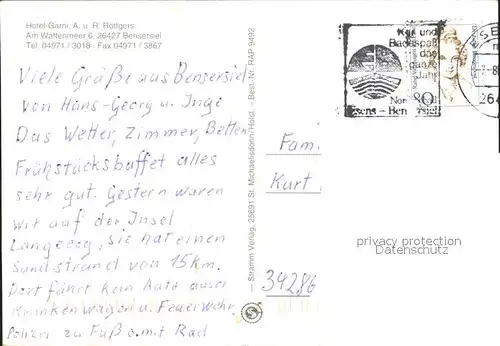 Hotel-Garni, A. u. R. Röttgers
Am Wattenmeer 6, 26427 Bensersiel
Tel. 04971 / 3018 - Fax 04971 / 3867
Viele Grüße aus Bensersiel
von Hans-Georg u. Inge
Das Wetter, Zimmer, Betten
Frühstücksbuffet alles
sehr gut. Gestern waren
wir auf der Insel
Langeoog, sie hat einen
Sandstrand von 15km.
Dort fährt kein Auto ausser
Krankenwagen u Feuerwehr
Polizei zu Fuß o. mit Rad
— Stramm Verlag, 25691 St. Michaelisdonn/Holst. — Best.-Nr. RAP 9492
Kur und
Badespaß
das
ganze
Jahr
80
Esens - Ben
Fam.
Kurt
34286
privacy protection
Datenschutz